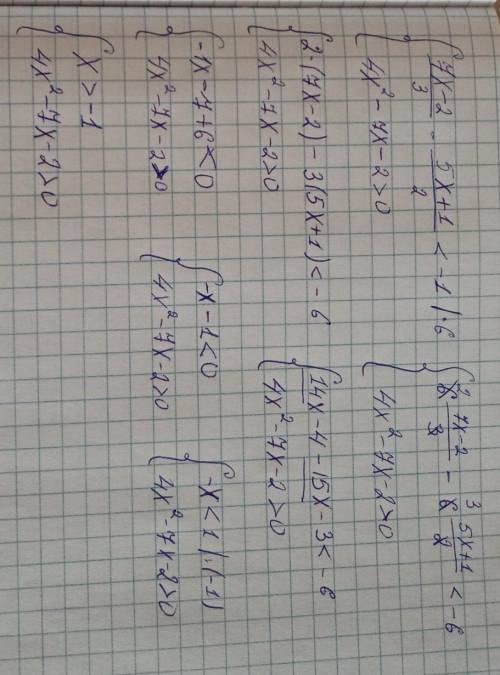 { (7x-2)/3 - (5x+1)/2 < -1 |·6
4x² - 7x - 2 > 0
{ 6 (7x-2)/3 - 6 (5x+1)/2 < -6
4x² - 7x - 2 > 0
{ 2·(7x-2) - 3(5x+1) < -6
4x² - 7x - 2 > 0
{ 14x - 4 - 15x - 3 < -6
4x² - 7x - 2 > 0
{ -1x - 7 + 6 < 0
4x² - 7x - 2 > 0
{ -x - 1 < 0
4x² - 7x - 2 > 0
{ -x < 1 |·(-1)
4x² - 7x - 2 > 0
{ x > -1
4x² - 7x - 2 > 0